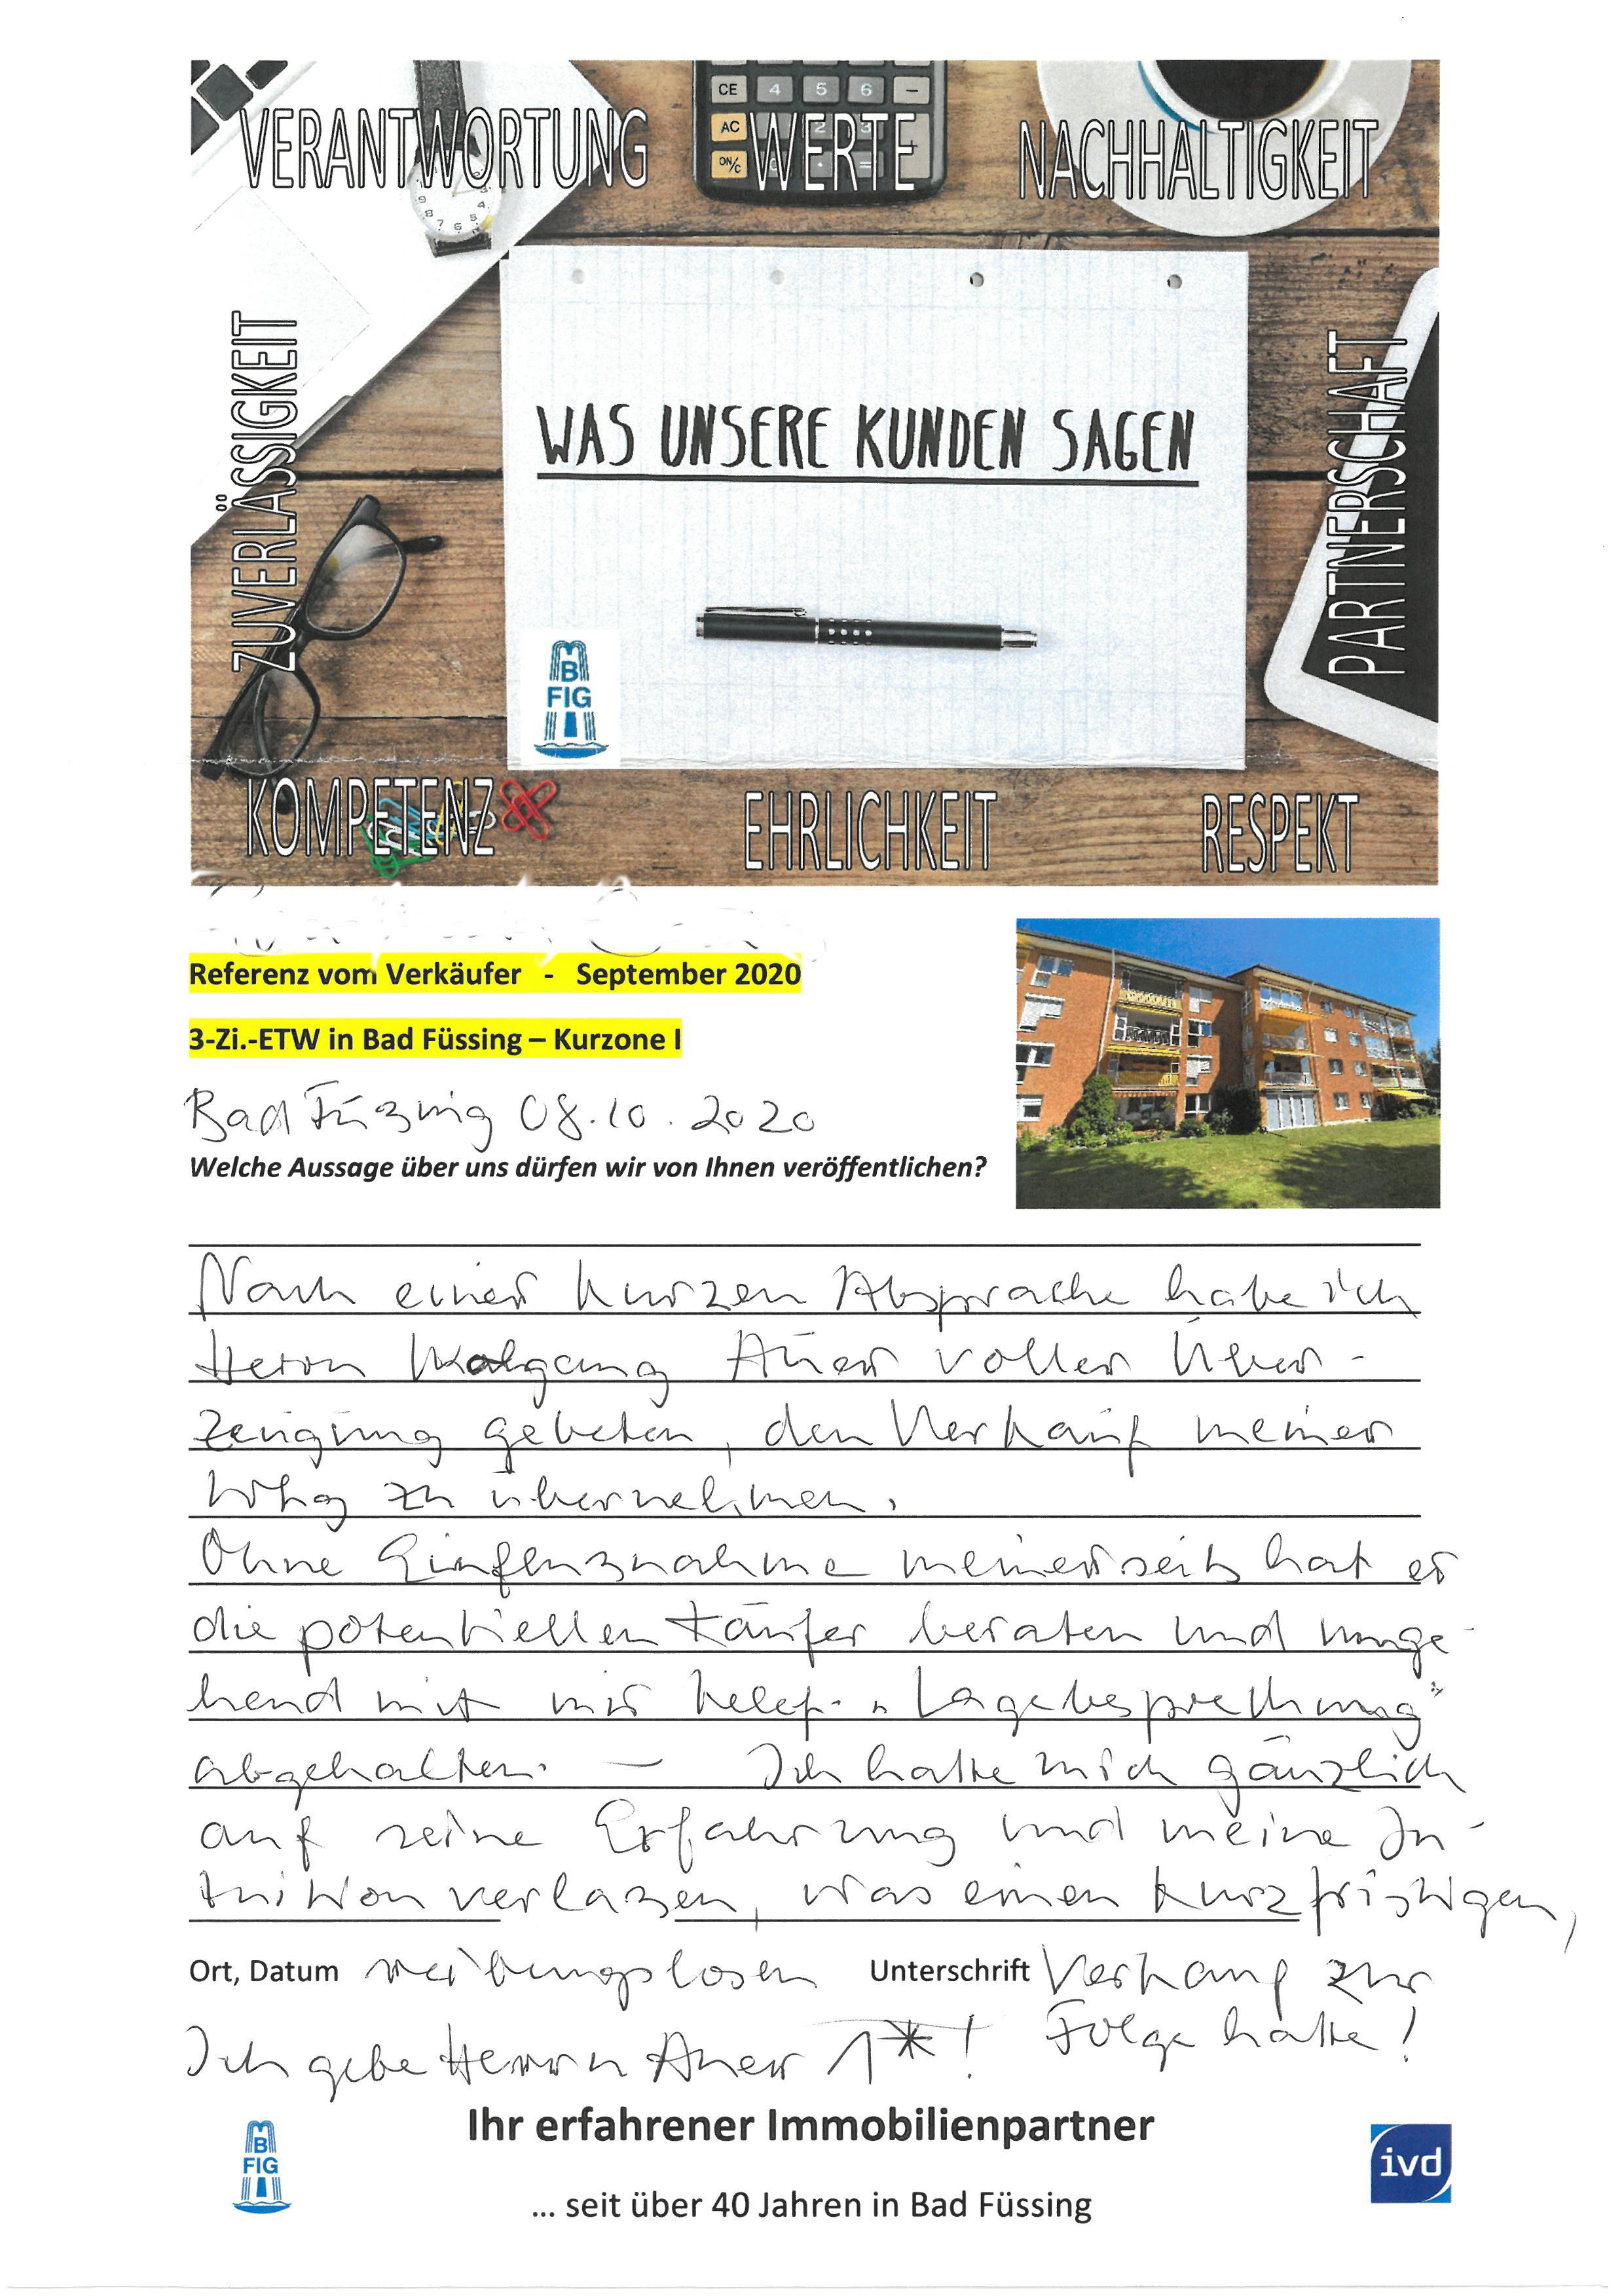 CE 4 5 6 −
AC 2 3 +
ON/C · =
VERANTWORTUNG WERTE NACHHALTIGKEIT
ZUVERLÄSSIGKEIT
PARTNERSCHAFT
WAS UNSERE KUNDEN SAGEN
B
FIG
KOMPETENZ EHRLICHKEIT RESPEKT
Referenz vom Verkäufer - September 2020
3-Zi.-ETW in Bad Füssing – Kurzone I
Bad Füßing 08.10.2020
Welche Aussage über uns dürfen wir von Ihnen veröffentlichen?
Nach einer kurzen Absprache habe ich
Herrn Auer voller Über-
zeugung gebeten, den Verkauf meiner
Whg zu übernehmen.
Ohne meinerseits hat er
die potentiellen Käufer beraten und umge-
hend mit mir telef. „Lagebesprechung"
abgehalten. — Ich hatte mich gänzlich
auf seine Erfahrung und meine In-
tuition verlaßen, was einen kurzfristigen,
Ort, Datum reibungslosen Unterschrift Verkauf zur
Folge hatte!
Ich gebe Herrn Auer 1*!
B
FIG
Ihr erfahrener Immobilienpartner
... seit über 40 Jahren in Bad Füssing
ivd